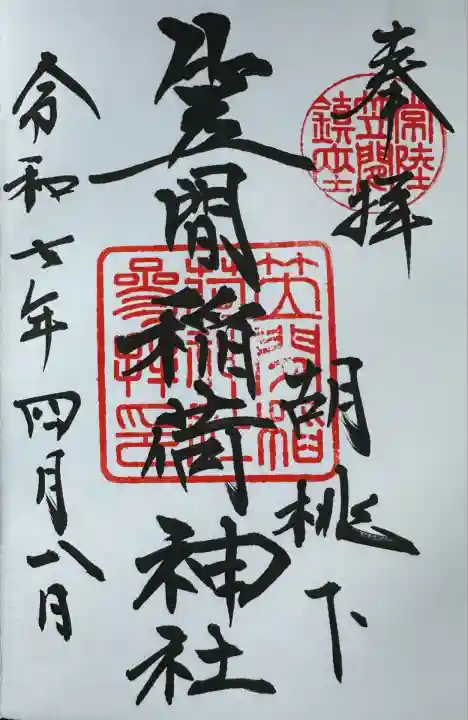 奉拝
常陸
笠間
鎮座
胡桃下
笠間稲荷神社
笠間稲
荷神社
参拝印
令和七年四月八日